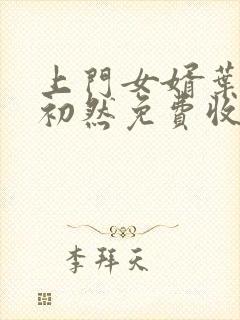 上門女婿葉
初然免費收
李拜天